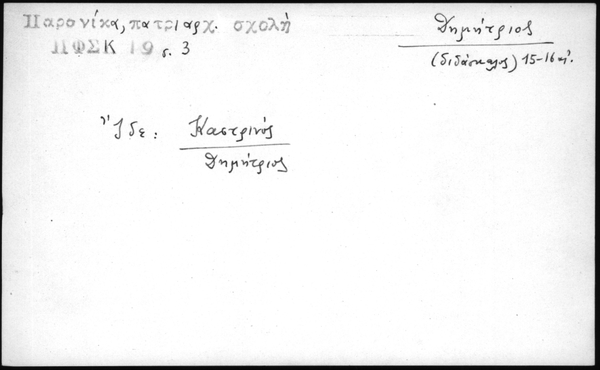 Παρανίκα, πατριαρχ. σχολὴ
ΠΦΣΚ 19 σ. 3
Δημήτριος
(διδάσκαλος) 15-16 αἰ.
Ἴδε: Καστρινός
Δημήτριος